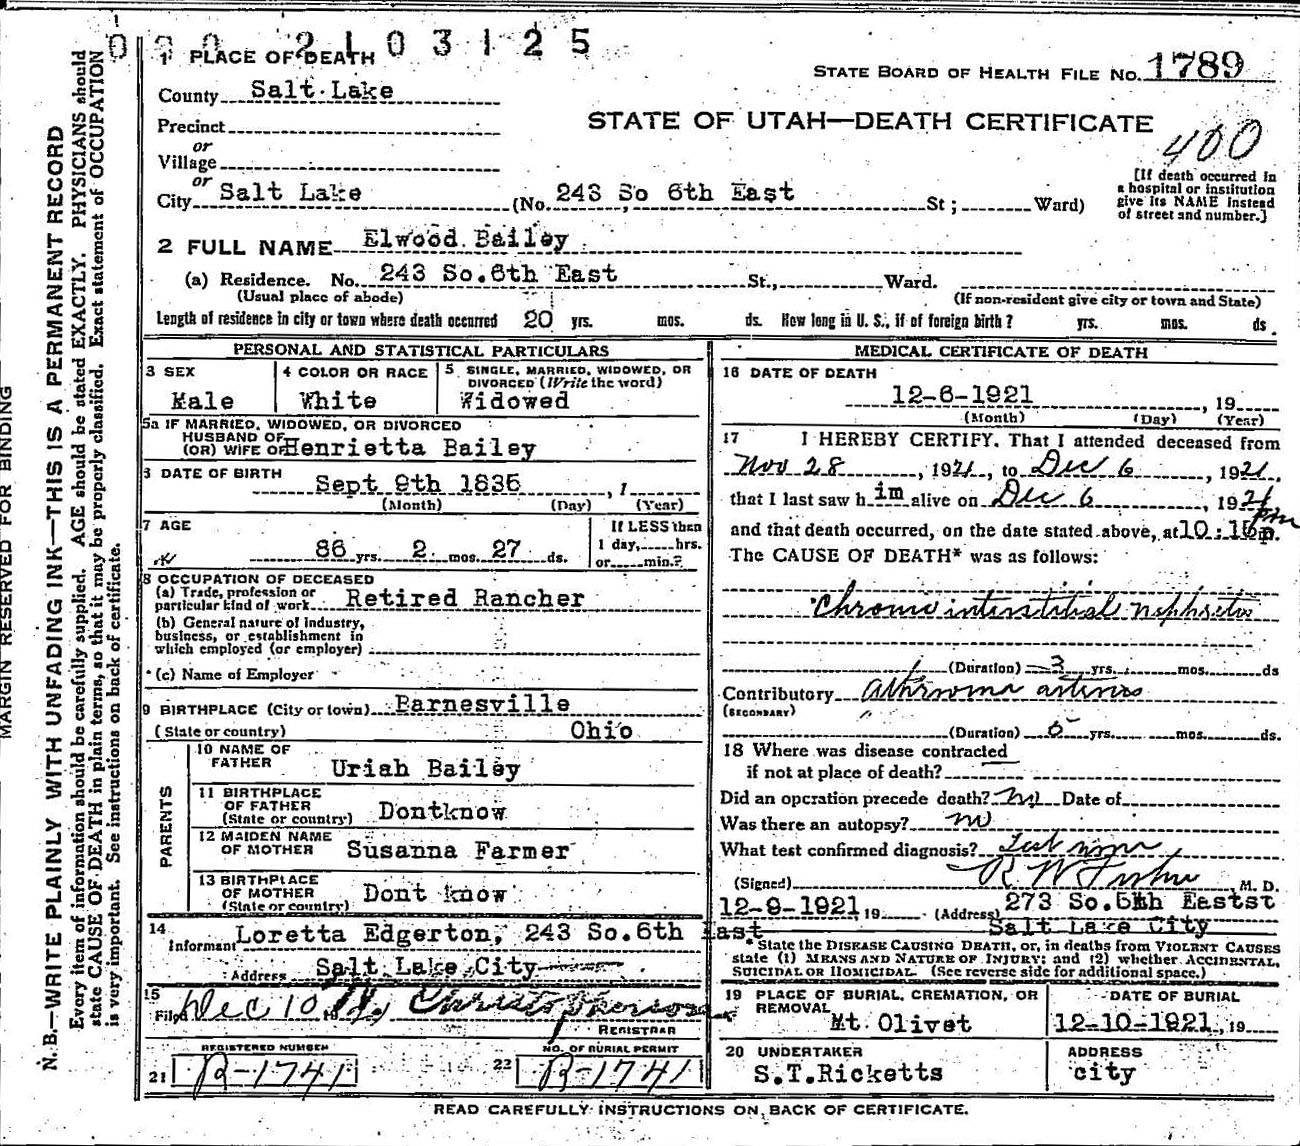 0 2 0 2 1 0 3 1 2 5
1 PLACE OF DEATH
STATE BOARD OF HEALTH FILE No. 1789
County Salt Lake
STATE OF UTAH—DEATH CERTIFICATE
Precinct
or
Village
400
or
City Salt Lake (No. 243 So 6th East St; Ward)
[If death occurred in a hospital or institution give its NAME instead of street and number.]
2 FULL NAME Elwood Bailey
(a) Residence. No. 243 So.6th East St., Ward.
(Usual place of abode) (If non-resident give city or town and State)
Length of residence in city or town where death occurred 20 yrs. mos. ds. How long in U. S., if of foreign birth? yrs. mos. ds.
PERSONAL AND STATISTICAL PARTICULARS
3 SEX
Male
4 COLOR OR RACE
White
5 SINGLE, MARRIED, WIDOWED, OR DIVORCED (Write the word)
Widowed
5a IF MARRIED, WIDOWED, OR DIVORCED
HUSBAND OF
(OR) WIFE OF Henrietta Bailey
6 DATE OF BIRTH
Sept 9th 1835 , 1
(Month) (Day) (Year)
7 AGE
86 yrs. 2 mos. 27 ds.
If LESS then
1 day, hrs.
or min.?
8 OCCUPATION OF DECEASED
(a) Trade, profession or
particular kind of work Retired Rancher
(b) General nature of industry,
business, or establishment in
which employed (or employer)
(c) Name of Employer
9 BIRTHPLACE (City or town) Barnesville
(State or country) Ohio
PARENTS
10 NAME OF FATHER Uriah Bailey
11 BIRTHPLACE OF FATHER (State or country) Dontknow
12 MAIDEN NAME OF MOTHER Susanna Farmer
13 BIRTHPLACE OF MOTHER (State or country) Dont know
14
Informant Loretta Edgerton, 243 So.6th East
Address Salt Lake City
15
Filed Dec 10 19 Christopherson
REGISTRAR
REGISTERED NUMBER
21 R-1741
NO. OF BURIAL PERMIT
22 R-1741
MEDICAL CERTIFICATE OF DEATH
16 DATE OF DEATH
12-6-1921 , 19
(Month) (Day) (Year)
17 I HEREBY CERTIFY, That I attended deceased from
Nov 28, 1921, to Dec 6, 1921,
that I last saw h im alive on Dec 6, 1921
and that death occurred, on the date stated above, at 10:15 p.m.
The CAUSE OF DEATH* was as follows:
Chronic interstitial nephritis
(Duration) 3 yrs. mos. ds
Contributory Atheroma arteries
(SECONDARY)
(Duration) 5 yrs. mos. ds.
18 Where was disease contracted
if not at place of death?
Did an operation precede death? no Date of
Was there an autopsy? no
What test confirmed diagnosis?
(Signed) R W M. D.
12-9-1921 19 (Address) 273 So.5th Eastst
Salt Lake City
* State the DISEASE CAUSING DEATH, or, in deaths from VIOLENT CAUSES
state (1) MEANS AND NATURE OF INJURY; and (2) whether ACCIDENTAL,
SUICIDAL OR HOMICIDAL. (See reverse side for additional space.)
19 PLACE OF BURIAL, CREMATION, OR REMOVAL
Mt. Olivet
DATE OF BURIAL
12-10-1921, 19
20 UNDERTAKER
S.T.Ricketts
ADDRESS
city
READ CAREFULLY INSTRUCTIONS ON BACK OF CERTIFICATE.
MARGIN RESERVED FOR BINDING
N. B.—WRITE PLAINLY WITH UNFADING INK—THIS IS A PERMANENT RECORD
Every item of information should be carefully supplied. AGE should be stated EXACTLY. PHYSICIANS should
state CAUSE OF DEATH in plain terms, so that it may be properly classified. Exact statement of OCCUPATION
is very important. See instructions on back of certificate.